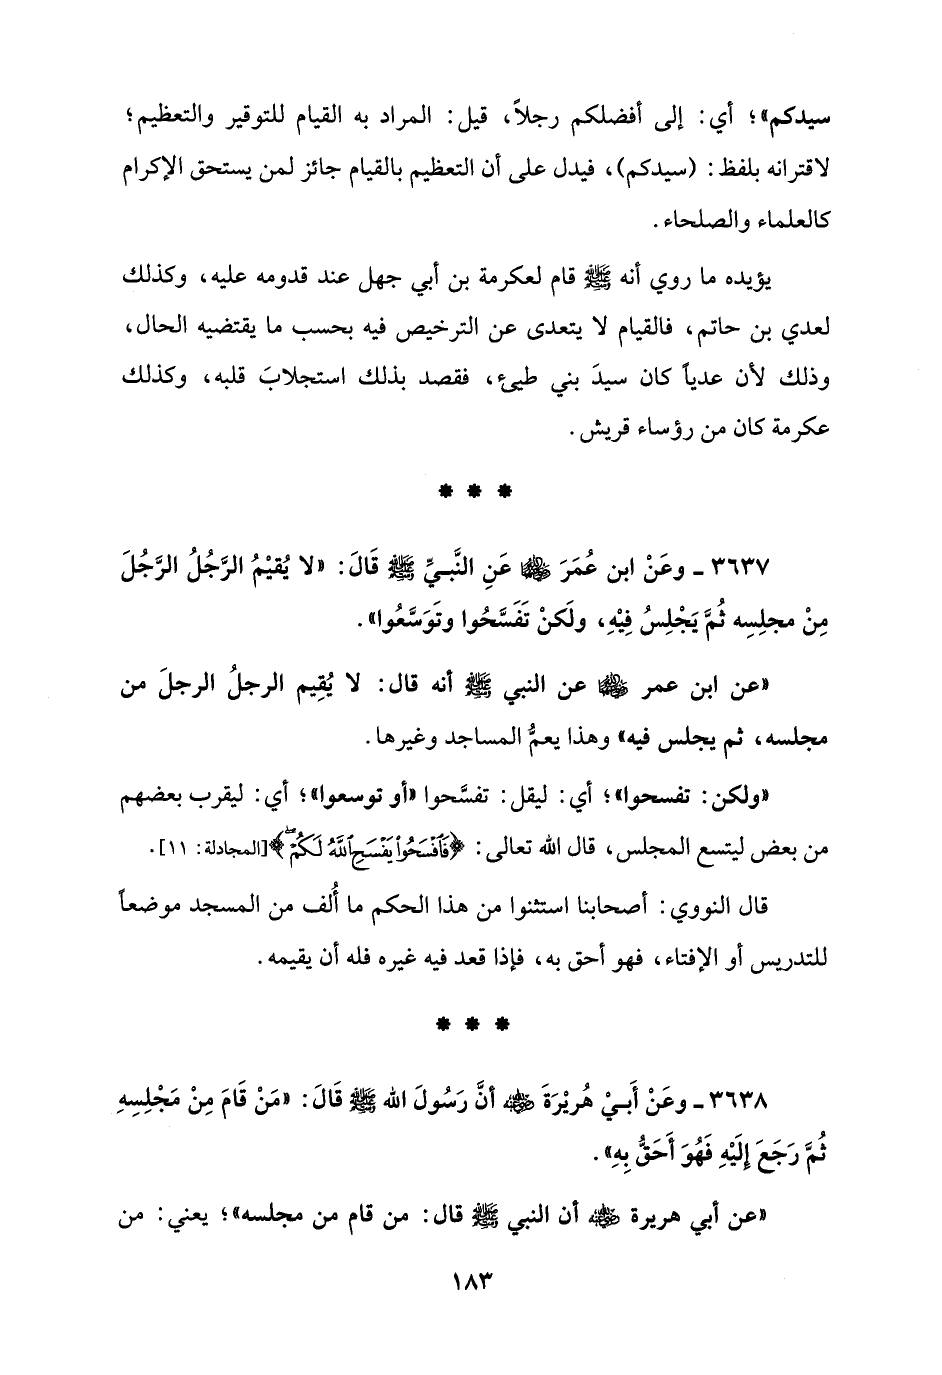 سيدكم»؛ أي: إلى أفضلكم رجلاً، قيل: المراد به القيام للتوقير والتعظيم؛
لاقترانه بلفظ: (سيدكم)، فيدل على أن التعظيم بالقيام جائز لمن يستحق الإكرام
كالعلماء والصلحاء.
يؤيده ما روي أنه ﷺ قام لعكرمة بن أبي جهل عند قدومه عليه، وكذلك
لعدي بن حاتم، فالقيام لا يتعدى عن الترخيص فيه بحسب ما يقتضيه الحال،
وذلك لأن عدياً كان سيدَ بني طيئ، فقصد بذلك استجلابَ قلبه، وكذلك
عكرمة كان من رؤساء قريش.
* * *
٣٦٣٧ ـ وعَنْ ابن عُمَرَ رضي الله عنهما عَنِ النَّبيِّ ﷺ قَالَ: «لا يُقيْمُ الرَّجُلُ الرَّجُلَ
مِنْ مجلِسِه ثُمَّ يَجْلِسُ فِيْهِ، ولَكنْ تَفَسَّحُوا وتَوَسَّعُوا».
«عن ابن عمر رضي الله عنهما عن النبي ﷺ أنه قال: لا يُقِيم الرجلُ الرجلَ من
مجلسه، ثم يجلس فيه» وهذا يعمُّ المساجد وغيرها.
«ولكن: تفسحوا»؛ أي: ليقل: تفسَّحوا «أو توسعوا»؛ أي: ليقرب بعضهم
من بعض ليتسع المجلس، قال الله تعالى: ﴿فَٱفْسَحُوا۟ يَفْسَحِ ٱللَّهُ لَكُمْ ۖ﴾[المجادلة: ١١].
قال النووي: أصحابنا استثنوا من هذا الحكم ما أُلف من المسجد موضعاً
للتدريس أو الإفتاء، فهو أحق به، فإذا قعد فيه غيره فله أن يقيمه.
* * *
٣٦٣٨ ـ وعَنْ أَبيْ هُريْرَةَ رضي الله عنه أنَّ رَسُولَ الله ﷺ قَالَ: «مَنْ قَامَ مِنْ مَجْلِسِهِ
ثُمَّ رَجَعَ إِلَيْهِ فَهُوَ أَحَقُّ بِهِ».
«عن أبي هريرة رضي الله عنه أن النبي ﷺ قال: من قام من مجلسه»؛ يعني: من
١٨٣